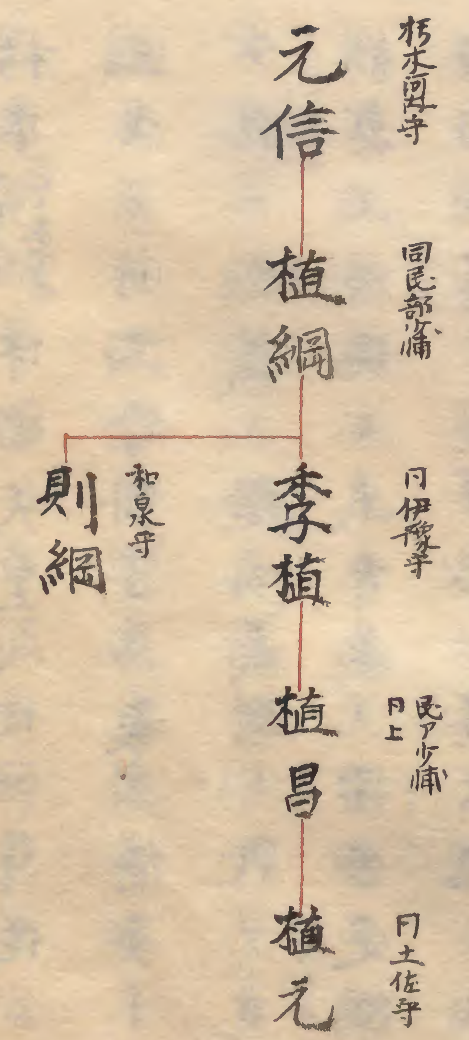 朽木河内守
元信
同民部少輔
植綱
同伊豫守
季植
和泉守
則綱
民ア少輔
同上
植昌
同土佐守
植元